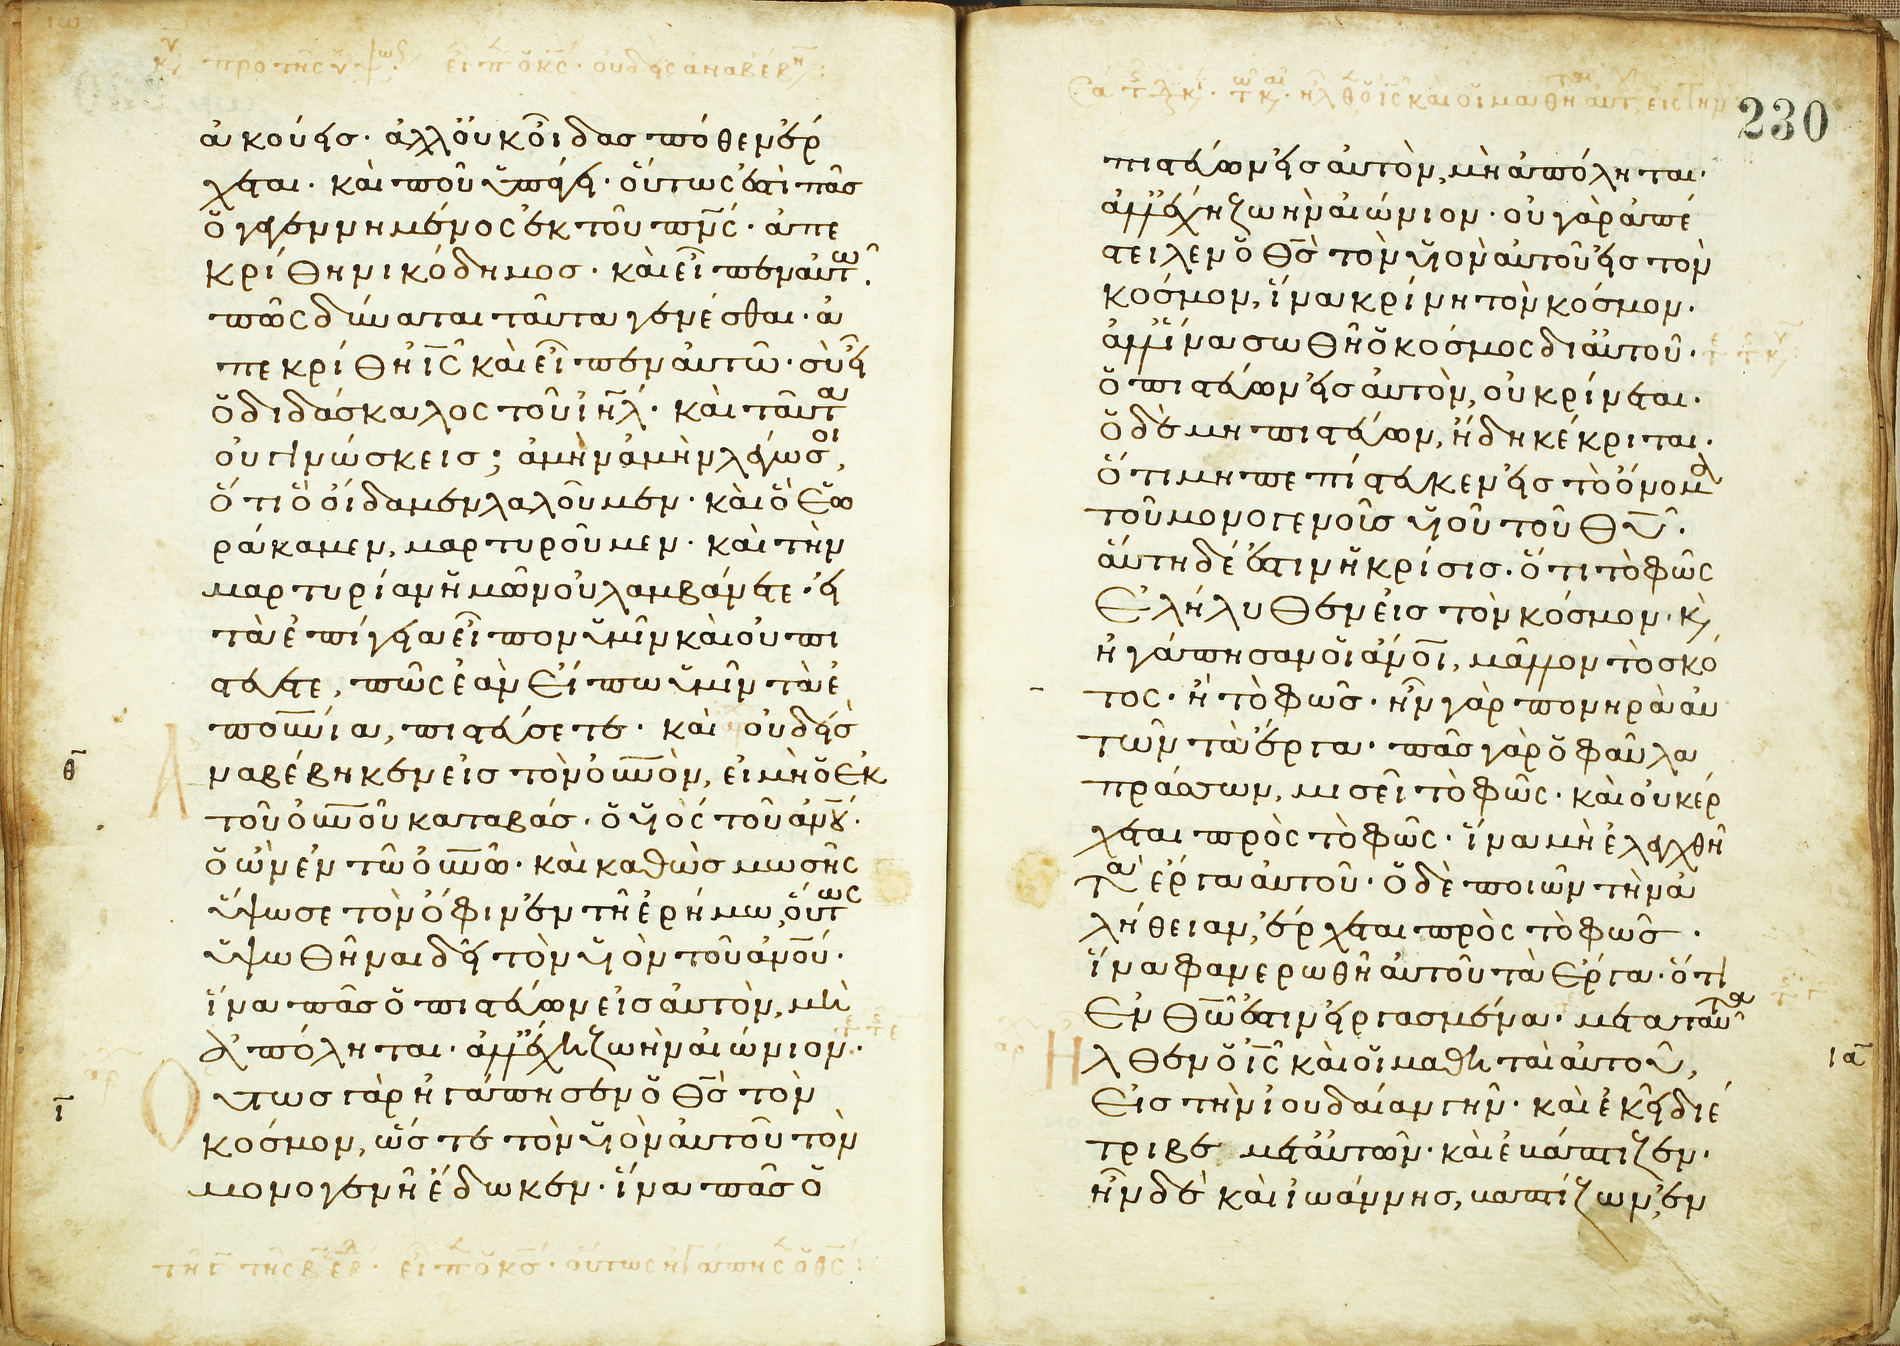 ἀκούεις· ἀλλ' οὐκ οἶδας πόθεν ἔρ
χεται· καὶ ποῦ ὑπάγει· οὕτως ἐστὶ πᾶς
ὁ γεγεννημένος ἐκ τοῦ πνς· ἀπε
κρίθη νικόδημος· καὶ εἶπεν αὐτῶ·
πῶς δύναται ταῦτα γενέσθαι· ἀ
πεκρίθη ις καὶ εἶπεν αὐτῶ· σὺ εἶ
ὁ διδάσκαλος τοῦ ιηλ· καὶ ταῦτα
οὐ γινώσκεις; ἀμὴν ἀμὴν λέγω σοι,
ὅτι ὃ οἴδαμεν λαλοῦμεν· καὶ ὃ ἑω
ράκαμεν, μαρτυροῦμεν· καὶ τὴν
μαρτυρίαν ἡμῶν οὐ λαμβάνετε· εἰ
τὰ ἐπίγεια εἶπον ὑμῖν καὶ οὐ πι
στεύετε, πῶς ἐὰν εἴπω ὑμῖν τὰ ἐ
πουνια, πιστεύσετε· καὶ οὐδεὶς
ἀναβέβηκεν εἰς τὸν οὐνὸν, εἰ μὴ ὁ ἐκ
τοῦ οὐνοῦ καταβάς· ὁ υἱὸς τοῦ ανου·
ὁ ὢν ἐν τῶ οὐνῶ· καὶ καθὼς μωσῆς
ὕψωσε τὸν ὄφιν ἐν τῆ ἐρήμω, οὕτως
ὑψωθῆναι δεῖ τὸν υἱὸν τοῦ ανου·
ἵνα πᾶς ὁ πιστεύων εἰς αὐτὸν, μὴ
ἀπόληται· ἀλλ' ἔχη ζωὴν αἰώνιον·
Οὕτως γὰρ ἠγάπησεν ὁ θς τὸν
κόσμον, ὥστε τὸν υἱὸν αὐτοῦ τὸν
μονογενῆ ἔδωκεν· ἵνα πᾶς ὁ
θ
ι
230
πιστεύων εἰς αὐτὸν, μὴ ἀπόληται·
ἀλλ' ἔχη ζωὴν αἰώνιον· οὐ γὰρ ἀπέ
στειλεν ὁ θς τὸν υἱὸν αὐτοῦ εἰς τὸν
κόσμον, ἵνα κρίνη τὸν κόσμον·
ἀλλ' ἵνα σωθῆ ὁ κόσμος δι' αὐτοῦ·
ὁ πιστεύων εἰς αὐτὸν, οὐ κρίνεται·
ὁ δὲ μη πιστεύων, ἤδη κέκριται·
ὅτι μη πεπίστευκεν εἰς τὸ ὄνομα
τοῦ μονογενοῦς υἱοῦ τοῦ θυ·
αὕτη δέ ἐστιν ἡ κρίσις· ὅτι τὸ φῶς
ἐλήλυθεν εἰς τὸν κόσμον· κὶ
ἠγάπησαν οἱ ανοι, μᾶλλον τὸ σκό
τος· ἢ τὸ φῶς· ἦν γὰρ πονηρὰ αὐ
τῶν τὰ ἔργα· πᾶς γὰρ ὁ φαῦλα
πράσσων, μισεῖ τὸ φῶς· καὶ οὐκ ἔρ
χεται πρὸς τὸ φῶς· ἵνα μὴ ἐλεγχθῆ
τὰ ἔργα αὐτοῦ· ὁ δὲ ποιῶν τὴν ἀ
λήθειαν, ἔρχεται πρὸς τὸ φῶς·
ἵνα φανερωθῆ αὐτοῦ τὰ ἔργα· ὅτι
ἐν θῶ ἐστιν εἰργασμένα· μετὰ ταῦτα
Ἦλθεν ὁ ις καὶ οἱ μαθηταὶ αὐτοῦ,
εἰς τὴν ἰουδαίαν γῆν· καὶ ἐκεῖ διέ
τριβε μετ' αὐτῶν· καὶ ἐβάπτιζεν·
ἦν δὲ καὶ ἰωάννης, βαπτίζων, ἐν
ια